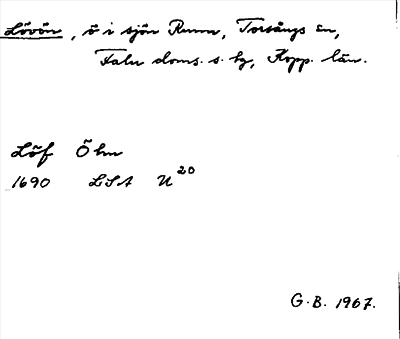 Lövön, ö i sjön Runn, Torsångs sn,
Falu doms. s. bg, Kopp. län.
Löf Öhn
1690 LSA U20
G.B. 1967.